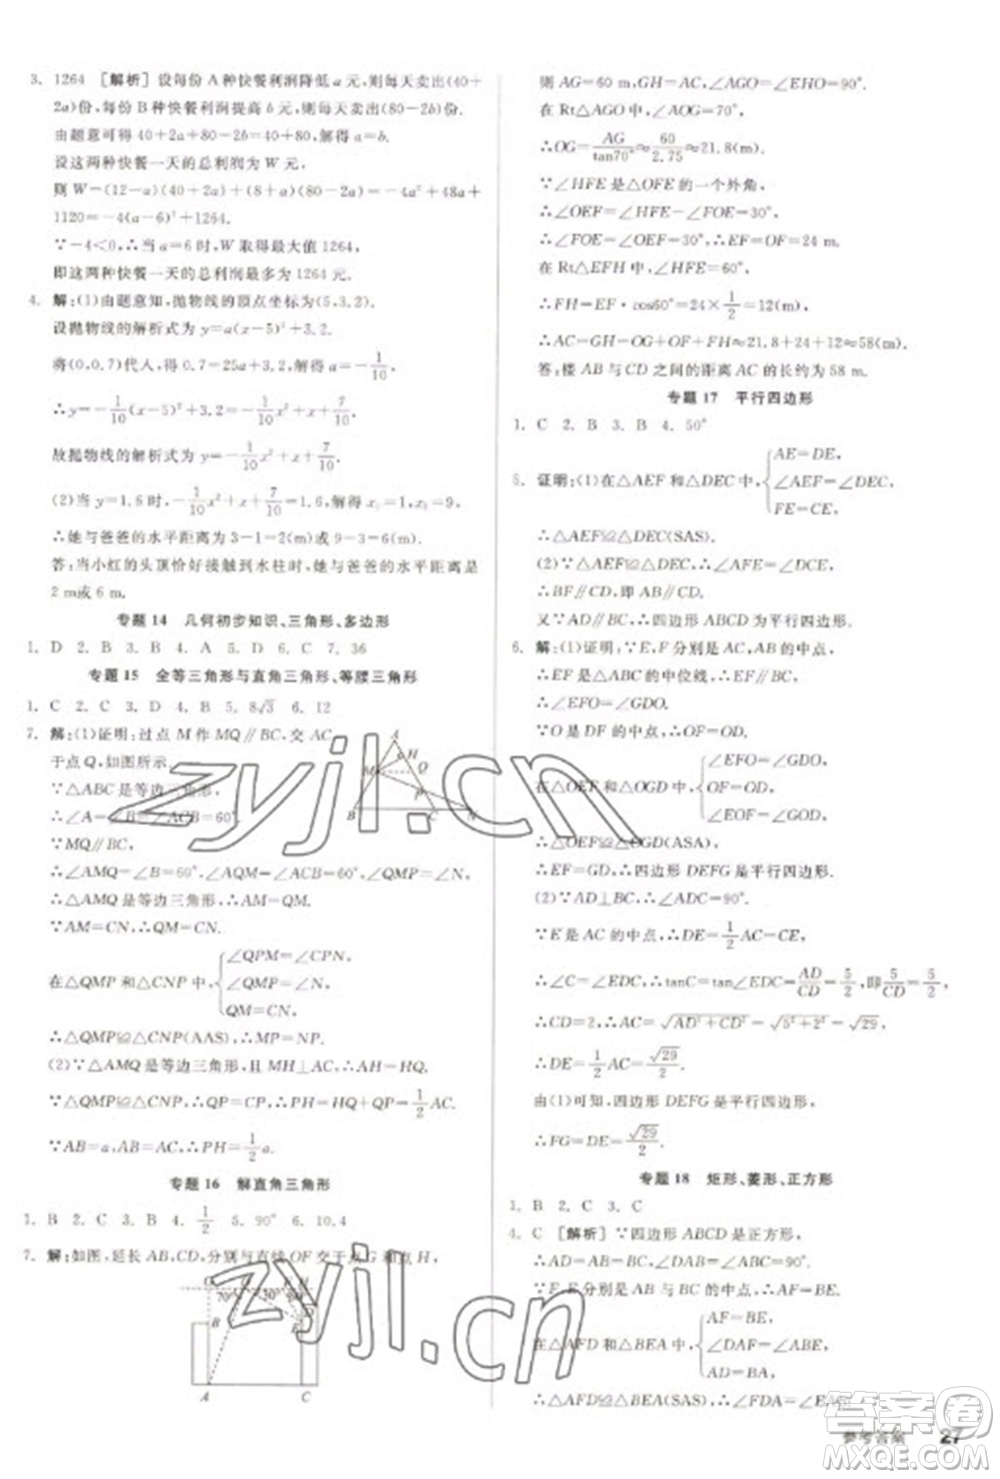 3. 1264 [解析]设每份A种快餐利润降低a元,则每天卖出(40+
2a)份,每份B种快餐利润提高b元,则每天卖出(80-2b)份.
由题意可得40+2a+80-2b=120,解得a=b.
设这两种快餐一天的总利润为W元.
则W=(12-a)(40+2a)+(8+a)(80-2a)=-4a²+48a+
1120=-4(a-6)²+1264.
∵-4<0,∴当a=6时,W取得最大值1264,
即这两种快餐一天的总利润最多为1264元.
4. 解:(1)由题意知,抛物线的顶点坐标为(5,3.2),
设抛物线的解析式为y=a(x-5)²+3.2.
将(0,0.7)代入,得0.7=25a+3.2,解得a=-1/10,
∴y=-1/10(x-5)²+3.2=-1/10x²+x+7/10.
故抛物线的解析式为y=-1/10x²+x+7/10.
(2)当y=1.6时,-1/10x²+x+7/10=1.6,解得x₁=1,x₂=9.
∴她与爸爸的水平距离为3-1=2(m)或9-3=6(m).
答:当小红的头顶恰好接触到水柱时,她与爸爸的水平距离是
2 m或6 m.
专题14 几何初步知识、三角形、多边形
1. D 2. D 3. B 4. B 5. B 6. C 7. 36
专题15 全等三角形与直角三角形、等腰三角形
1. C 2. C 3. D 4. B 5. 8√3 6. 12
7. 解:(1)证明:过点M作MQ∥BC,交AC
于点Q,如图所示.
∵△ABC是等边三角形,
∴∠A=∠B=∠ACB=60°.
∵MQ∥BC,
∴∠AMQ=∠B=60°,∠AQM=∠ACB=60°,∠QMP=∠N,
∴△AMQ是等边三角形,∴AM=QM.
∵AM=CN,∴QM=CN.
在△QMP和△CNP中,{∠QPM=∠CPN, ∠QMP=∠N, QM=CN,
∴△QMP≌△CNP(AAS),∴MP=NP.
(2)∵△AMQ是等边三角形,且MH⊥AC,∴AH=HQ.
∵△QMP≌△CNP,∴QP=CP,∴PH=HQ+QP=1/2AC.
∵AB=a,AB=AC,∴PH=1/2a.
专题16 解直角三角形
1. C 2. B 3. B 4. 1/2 5. 90° 6. 10.4
7. 解:如图,延长AB,CD,分别与直线OF交于点G和点H,
则AG=60 m,GH=AC,∠AGO=∠EHO=90°.
在Rt△AGO中,∠AOG=70°,
∴OG=AG/tan70°≈60/2.75≈21.8(m).
∵∠HFE是△OFE的一个外角,
∴∠OEF=∠HFE-∠FOE=30°,
∴∠FOE=∠OEF=30°,∴OF=EF=24 m.
在Rt△EFH中,∠HFE=60°,
∴FH=EF·cos60°=24×1/2=12(m),
∴AC=GH=OG+OF+FH≈21.8+24+12≈58(m).
答:楼AB与CD之间的距离AC的长约为58 m.
专题17 平行四边形
1. C 2. B 3. B 4. 50°
5. 证明:(1)在△AEF和△DEC中,{AE=DE, ∠AEF=∠DEC, FE=CE,
∴△AEF≌△DEC(SAS).
(2)∵△AEF≌△DEC,∴∠AFE=∠DCE,
∴BF∥CD,即AB∥CD.
又∵AD∥BC,∴四边形ABCD为平行四边形.
6. 解:(1)证明:∵E,F分别是AC,AB的中点,
∴EF是△ABC的中位线,∴EF∥BC,
∴∠EFO=∠GDO.
∵O是DF的中点,∴OF=OD.
在△OEF和△OGD中,{∠EFO=∠GDO, OF=OD, ∠EOF=∠GOD,
∴△OEF≌△OGD(ASA).
∴EF=GD,∴四边形DEFG是平行四边形.
(2)∵AD⊥BC,∴∠ADC=90°.
∵E是AC的中点,∴DE=1/2AC=CE,
∴∠C=∠EDC,∴tanC=tan∠EDC=AD/CD=5/2,即5/CD=5/2,
∴CD=2,∴AC=√(AD²+CD²)=√(5²+2²)=√29,
∴DE=1/2AC=√29/2.
由(1)可知,四边形DEFG是平行四边形,
∴FG=DE=√29/2.
专题18 矩形、菱形、正方形
1. B 2. C 3. C
4. C [解析]∵四边形ABCD是正方形,
∴AD=AB=BC,∠DAF=∠ABE=90°.
∵E,F分别是BC,AB的中点,∴AF=BE.
在△AFD和△BEA中,{AF=BE, ∠DAF=∠ABE, AD=BA,
∴△AFD≌△BEA(SAS),∴∠FDA=∠EAB.
参考答案 27
zyjl.cn
zyjl.cn
答案圈